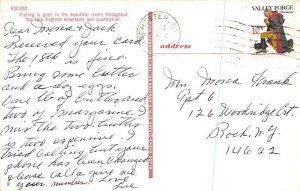 KBC-392
Fishing is good in the beautiful rivers throughout
the New England mountains and countryside.
Dear Mona & Jack
Received your card.
The 18th is fine.
Bring some butter
and a doz eggs.
One lb of butter and
two of margarine. I
mix the two butter
is two expensive. I
tried calling but your
phone has been changed
please call & give me
your number. Love
address
VALLEY FORGE
Mrs. Mona Frank
Apt 6
126 Woodridge Ct.
Roch. N.Y.
14622